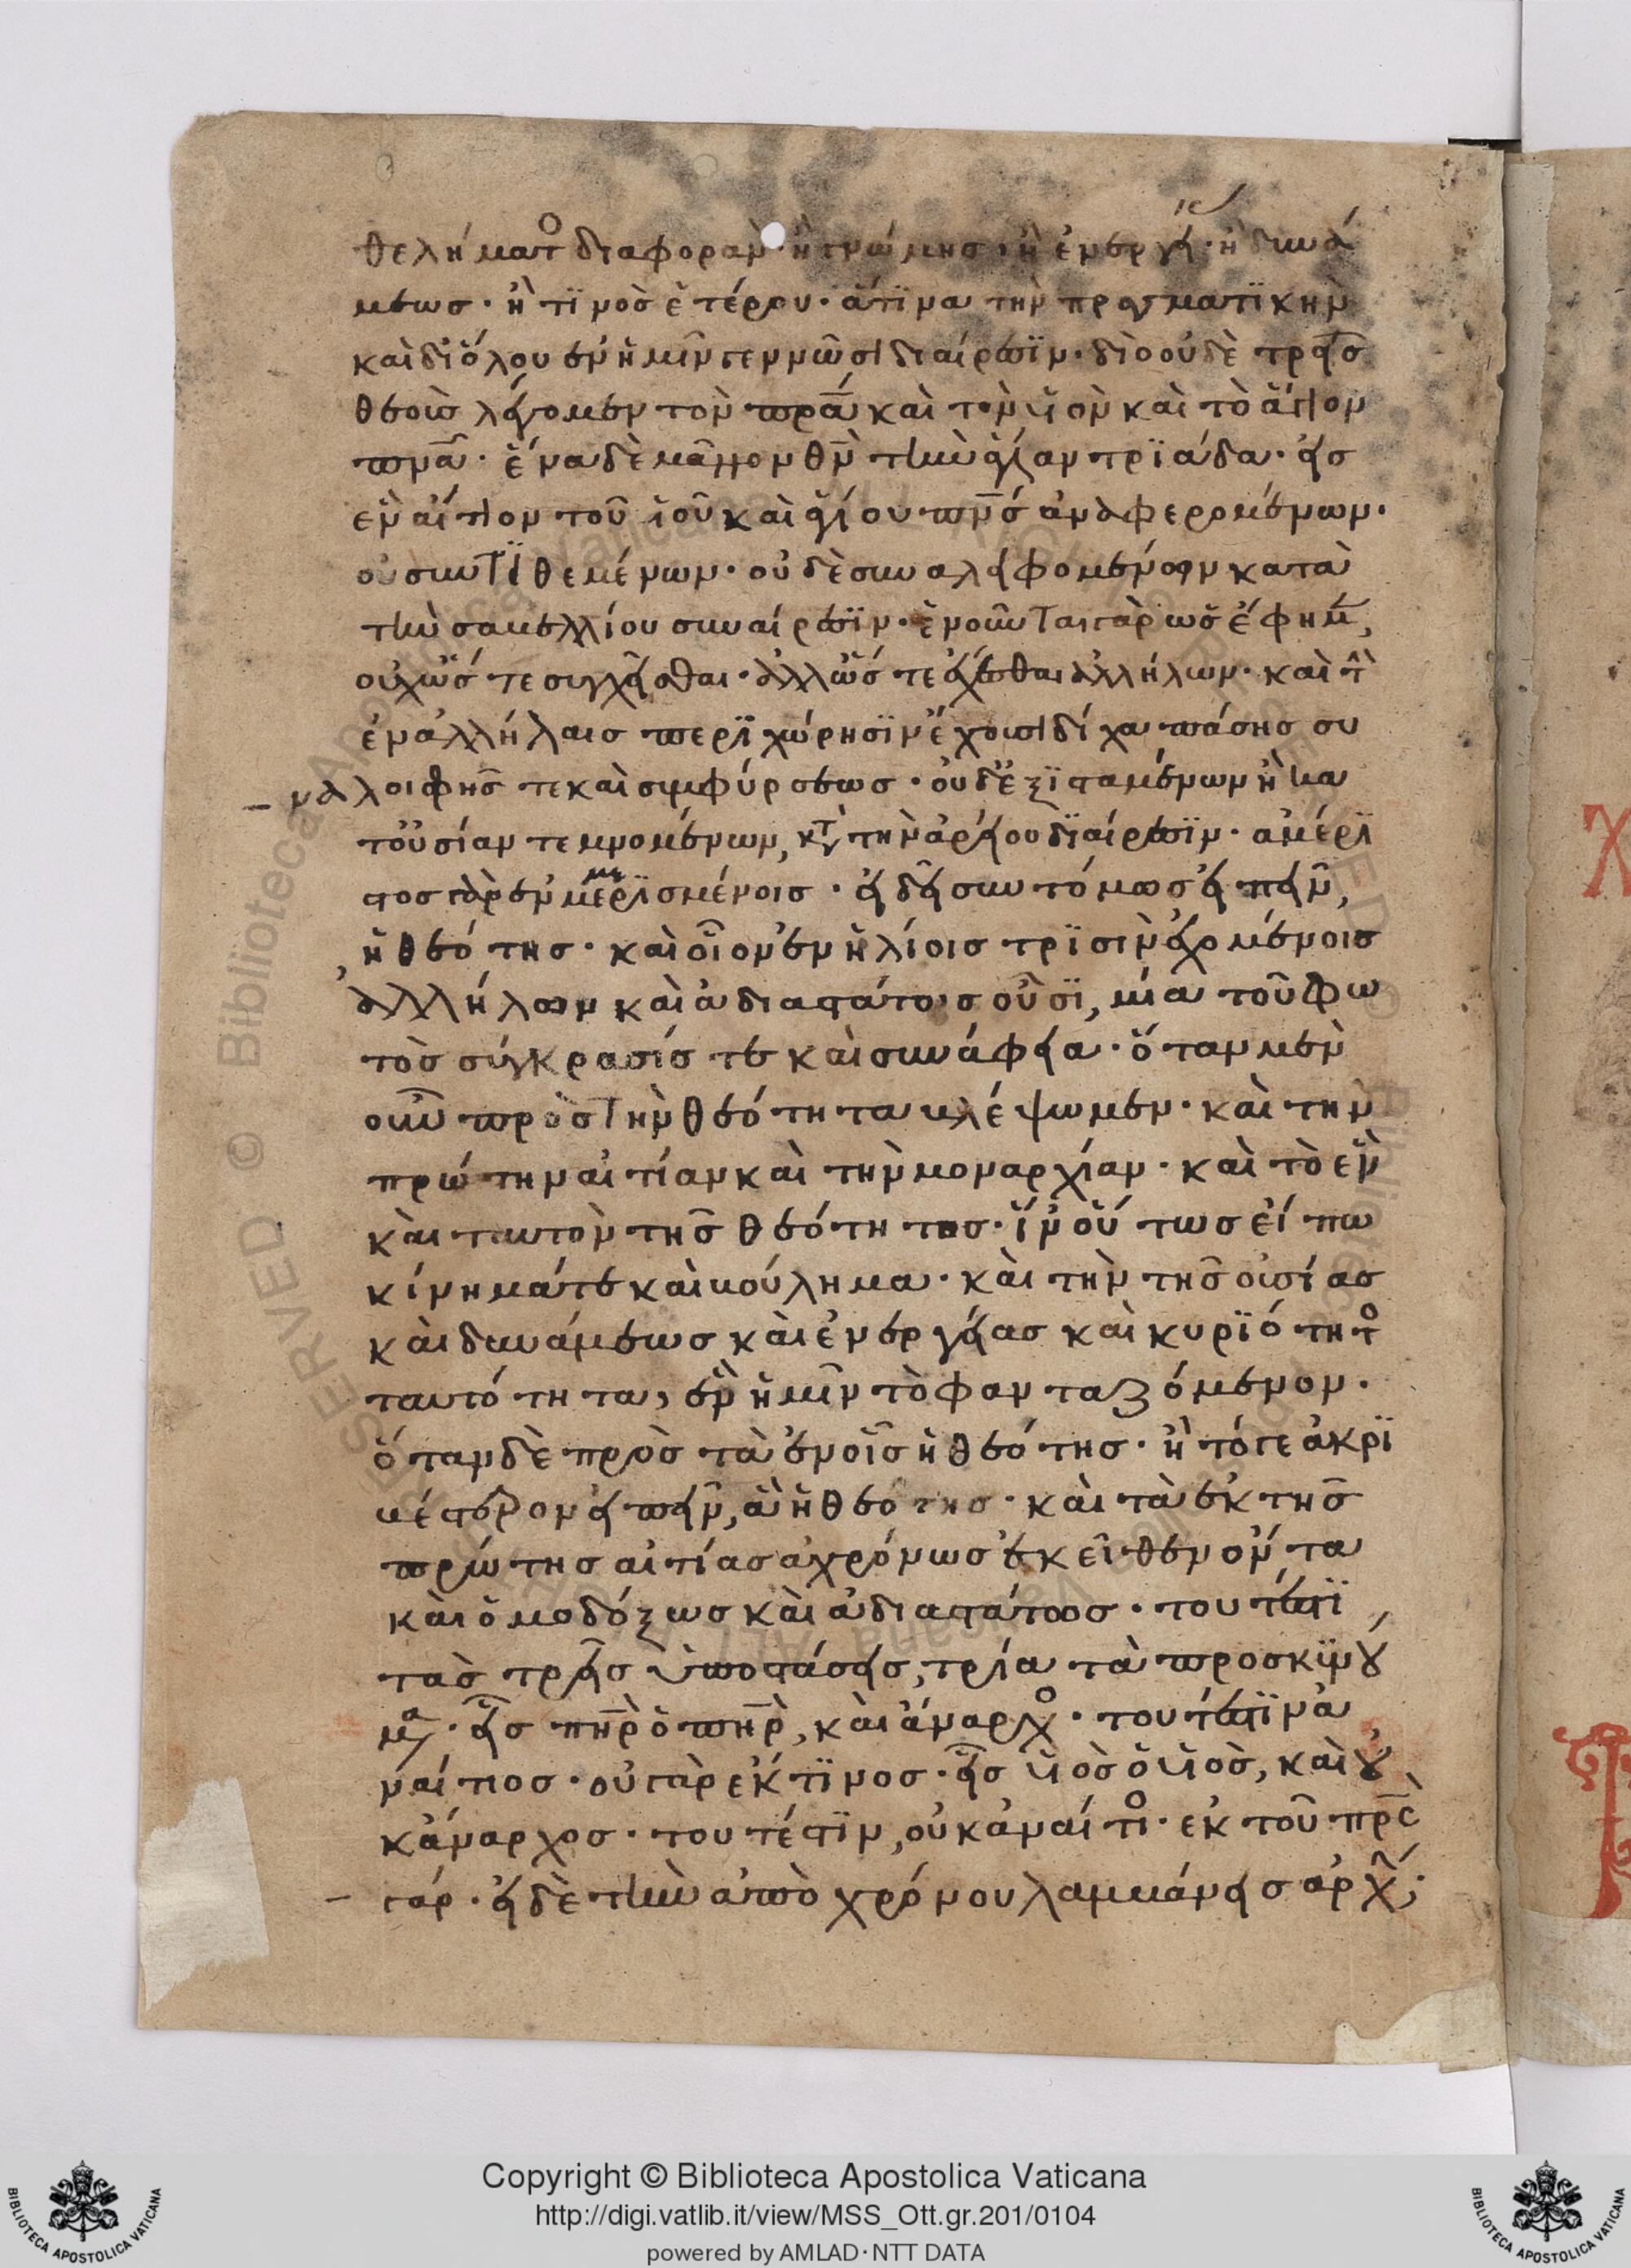 θελήματο διαφορὰν· ἢ γνώμης· ἢ ἐνεργεί· ἢ δυνά
μεως· ἤ τινος ἑτέρου· ἅτινα τὴν πραγματικὴν
καὶ δι' ὅλου ἐν ἡμῖν γεννῶσι διαίρεσιν· διὸ οὐδὲ τρεῖς
θεοὺς λέγομεν τὸν πρα καὶ τὸν υἱὸν καὶ τὸ ἅγιον
πνα· ἕνα δὲ μᾶλλον θν τὴν ἁγίαν τριάδα· εἰς
ἓν αἴτιον τοῦ υἱοῦ καὶ ἁγίου πνς ἀναφερομένων·
οὐ συντιθεμένων· οὐδὲ συναλειφομένων κατὰ
τὴν σαβελλίου συναίρεσιν· ἑνοῦνται γὰρ ὡς ἔφημεν,
οὐχ ὥς τε συγχεῖσθαι· ἀλλ' ὥς τε ἔχεσθαι ἀλλήλων· καὶ τὴν
ἐν ἀλλήλαις περιχώρησιν ἔχουσι δίχα πάσης συ
ναλοιφῆς τε καὶ συμφύρσεως· οὐδ' ἐξισταμένων ἢ κα
τ' οὐσίαν τεμνομένων, κατὰ τὴν ἀρείου διαίρεσιν· ἀμέρι
στος γὰρ ἐν μεμερισμένοις· εἰ δεῖ συντόμως εἰπεῖν,
ἡ θεότης· καὶ οἷον ἐν ἡλίοις τρισὶν ἐχομένοις
ἀλλήλων καὶ ἀδιαστάτοις οὖσι, μία τοῦ φω
τὸς σύγκρασίς τε καὶ συνάφεια· ὅταν μὲν
οὖν πρὸς τὴν θεότητα βλέψωμεν· καὶ τὴν
πρώτην αἰτίαν καὶ τὴν μοναρχίαν· καὶ τὸ ἓν
καὶ ταυτὸν τῆς θεότητος· ἵν' οὕτως εἴπω
κίνημά τε καὶ βούλημα· καὶ τὴν τῆς οὐσίας
καὶ δυνάμεως καὶ ἐνεργείας καὶ κυριότητο
ταυτότητα, ἓν ἡμῖν τὸ φανταζόμενον·
ὅταν δὲ πρὸς τὰ ἐν οἷς ἡ θεότης· ἢ τό γε ἀκρι
βέστερον εἰπεῖν, ἃ ἡ θεότης· καὶ τὰ ἐκ τῆς
πρώτης αἰτίας ἀχρόνως ἐκεῖθεν ὄντα
καὶ ὁμοδόξως καὶ ἀδιαστάτως· τουτέστι
τὰς τρεῖς ὑποστάσεις, τρία τὰ προσκυνού
μενα· εἷς πηρ ὁ πηρ, καὶ ἄναρχο· τουτέστιν ἀ
ναίτιος· οὐ γὰρ ἔκ τινος· εἷς υἱὸς ὁ υἱὸς, καὶ οὐ
κ ἄναρχος· τουτέστιν, οὐκ ἀναίτιο· ἐκ τοῦ πρς
γάρ· εἰ δὲ τὴν ἀπὸ χρόνου λαμβάνεις ἀρχήν·
Copyright © Biblioteca Apostolica Vaticana
http://digi.vatlib.it/view/MSS_Ott.gr.201/0104
powered by AMLAD·NTT DATA
BIBLIOTECA APOSTOLICA VATICANA
BIBLIOTECA APOSTOLICA VATICANA